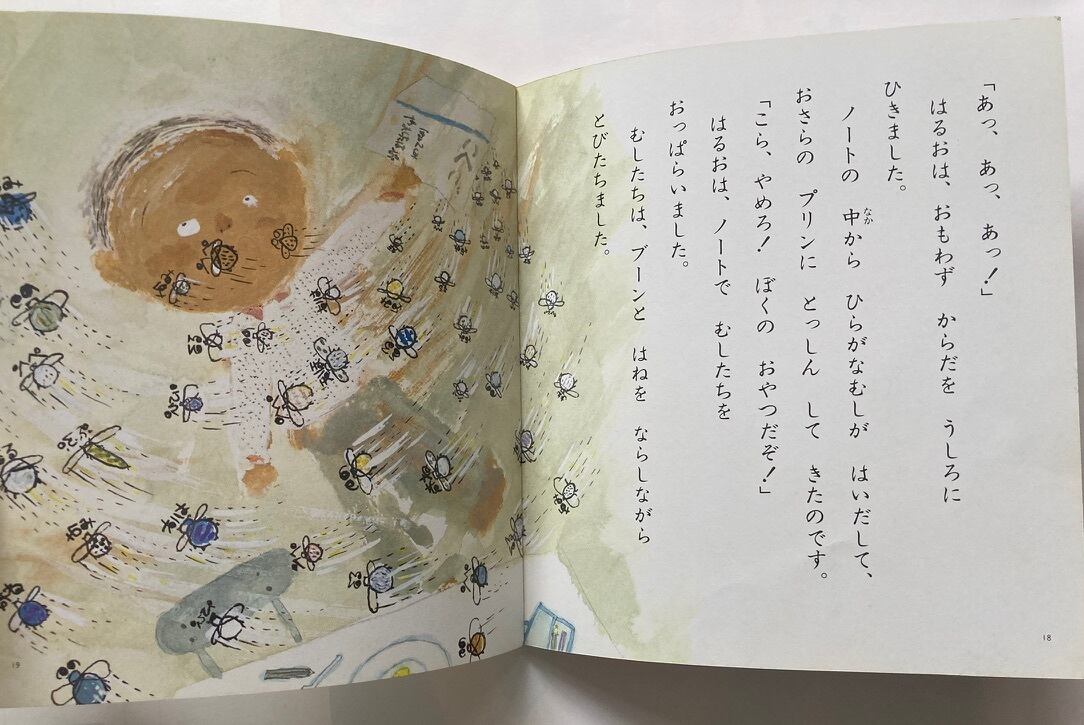 「あっ、あっ、あっ!」
はるおは、おもわず からだを うしろに
ひきました。
ノートの 中から ひらがなむしが はいだして、
なか
おさらの プリンに とっしん して きたのです。
「こら、やめろ! ぼくの おやつだぞ!」
はるおは、ノートで むしたちを
おっぱらいました。
むしたちは、ブーンと はねを ならしながら
とびたちました。
18
19